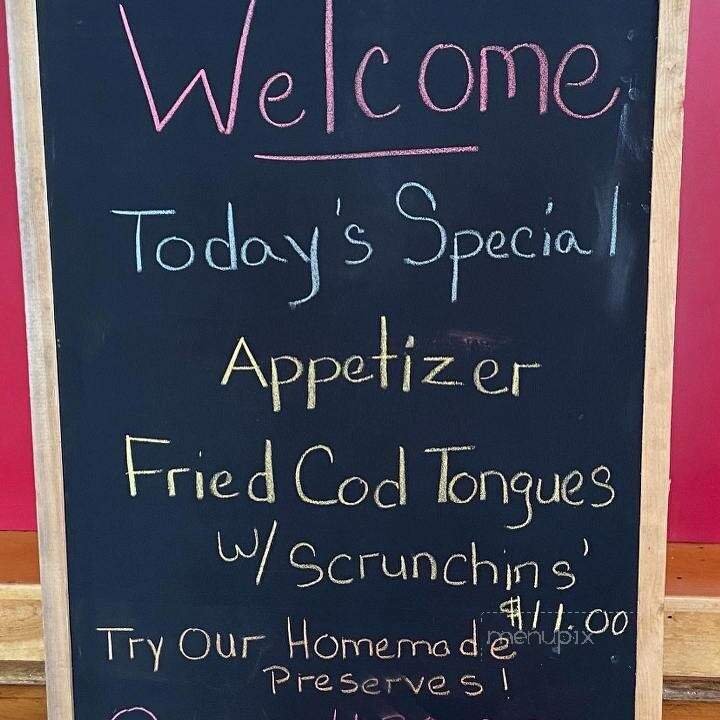 Welcome
Today's Special
Appetizer
Fried Cod Tongues
w/ Scrunchins'
$11.00
menupix
Try Our Homemade
Preserves!